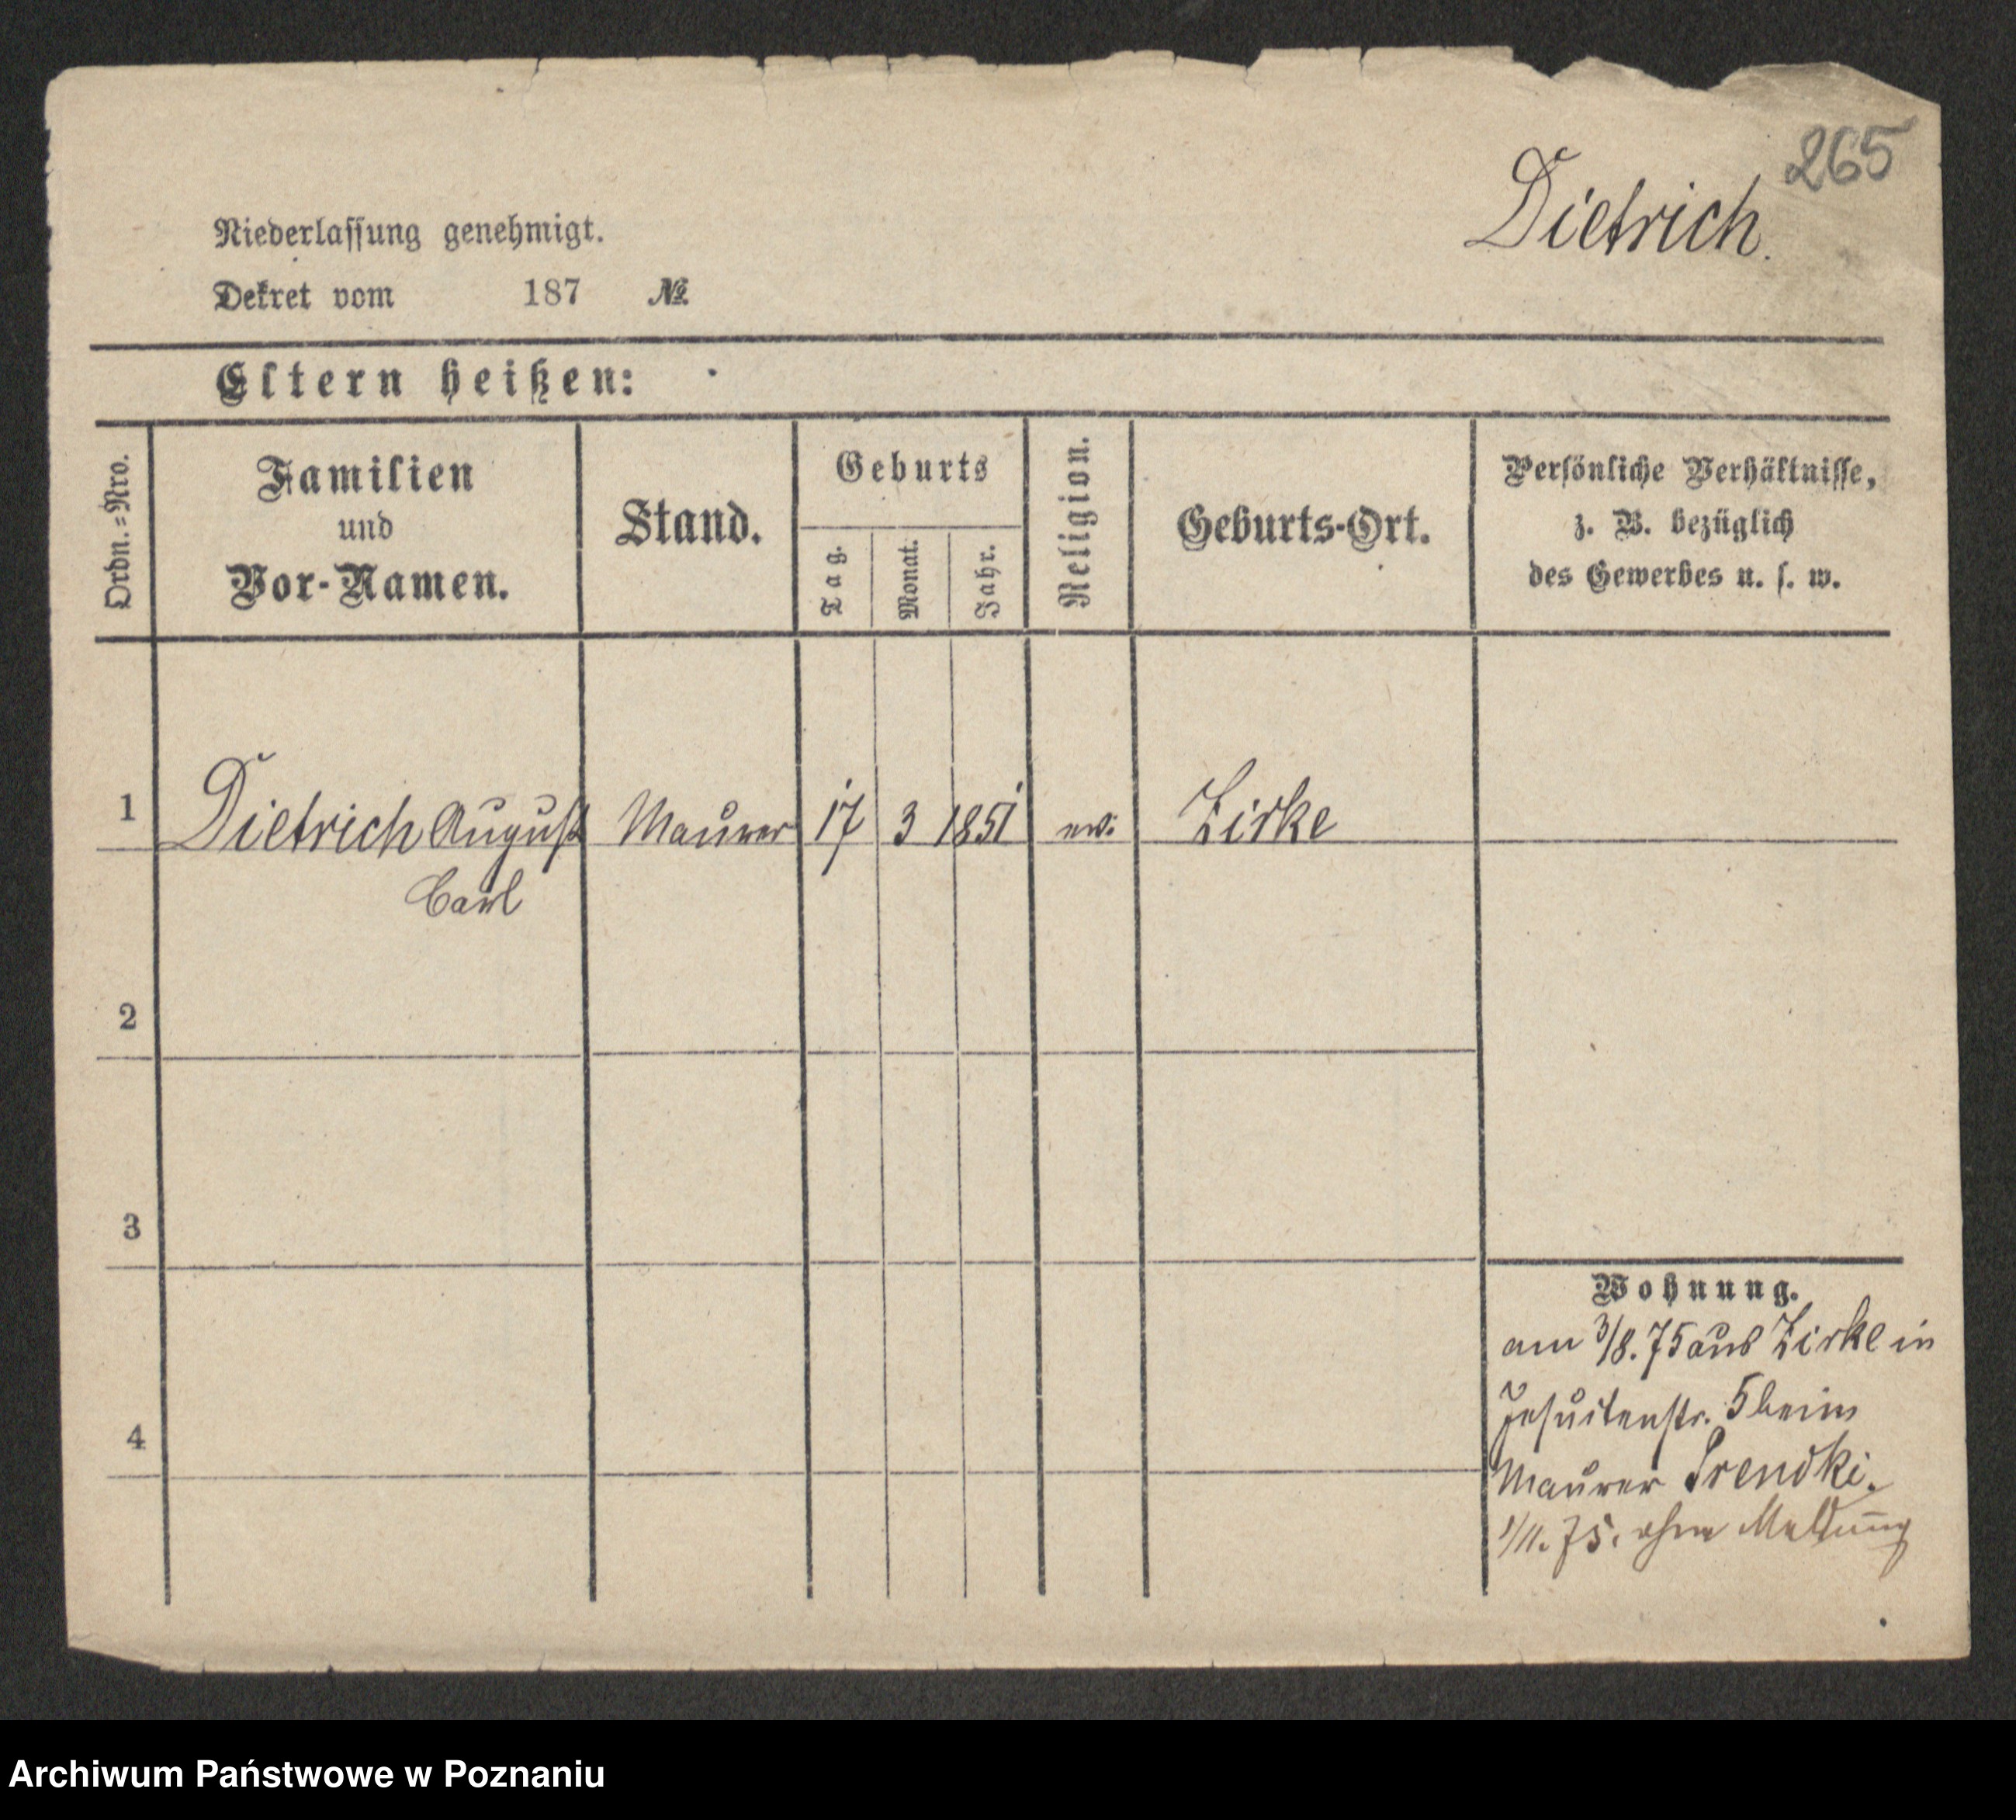 265
Dietrich.
Niederlassung genehmigt.
Dekret vom 187 №
Eltern heißen:
Ordn.=Nro.
Familien
und
Vor-Namen.
Stand.
Geburts
Tag.
Monat.
Jahr.
Religion.
Geburts-Ort.
Persönliche Verhältnisse,
z. B. bezüglich
des Gewerbes u. s. w.
1 Dietrich August Maurer 17 3 1851 ev: Zirke
Carl
2
3
4
Wohnung.
am 3/8. 75 aus Zirke in
Jesuitenstr. 5 beim
Maurer Trendki.
1/11. 75. ohne Meldung
Archiwum Państwowe w Poznaniu